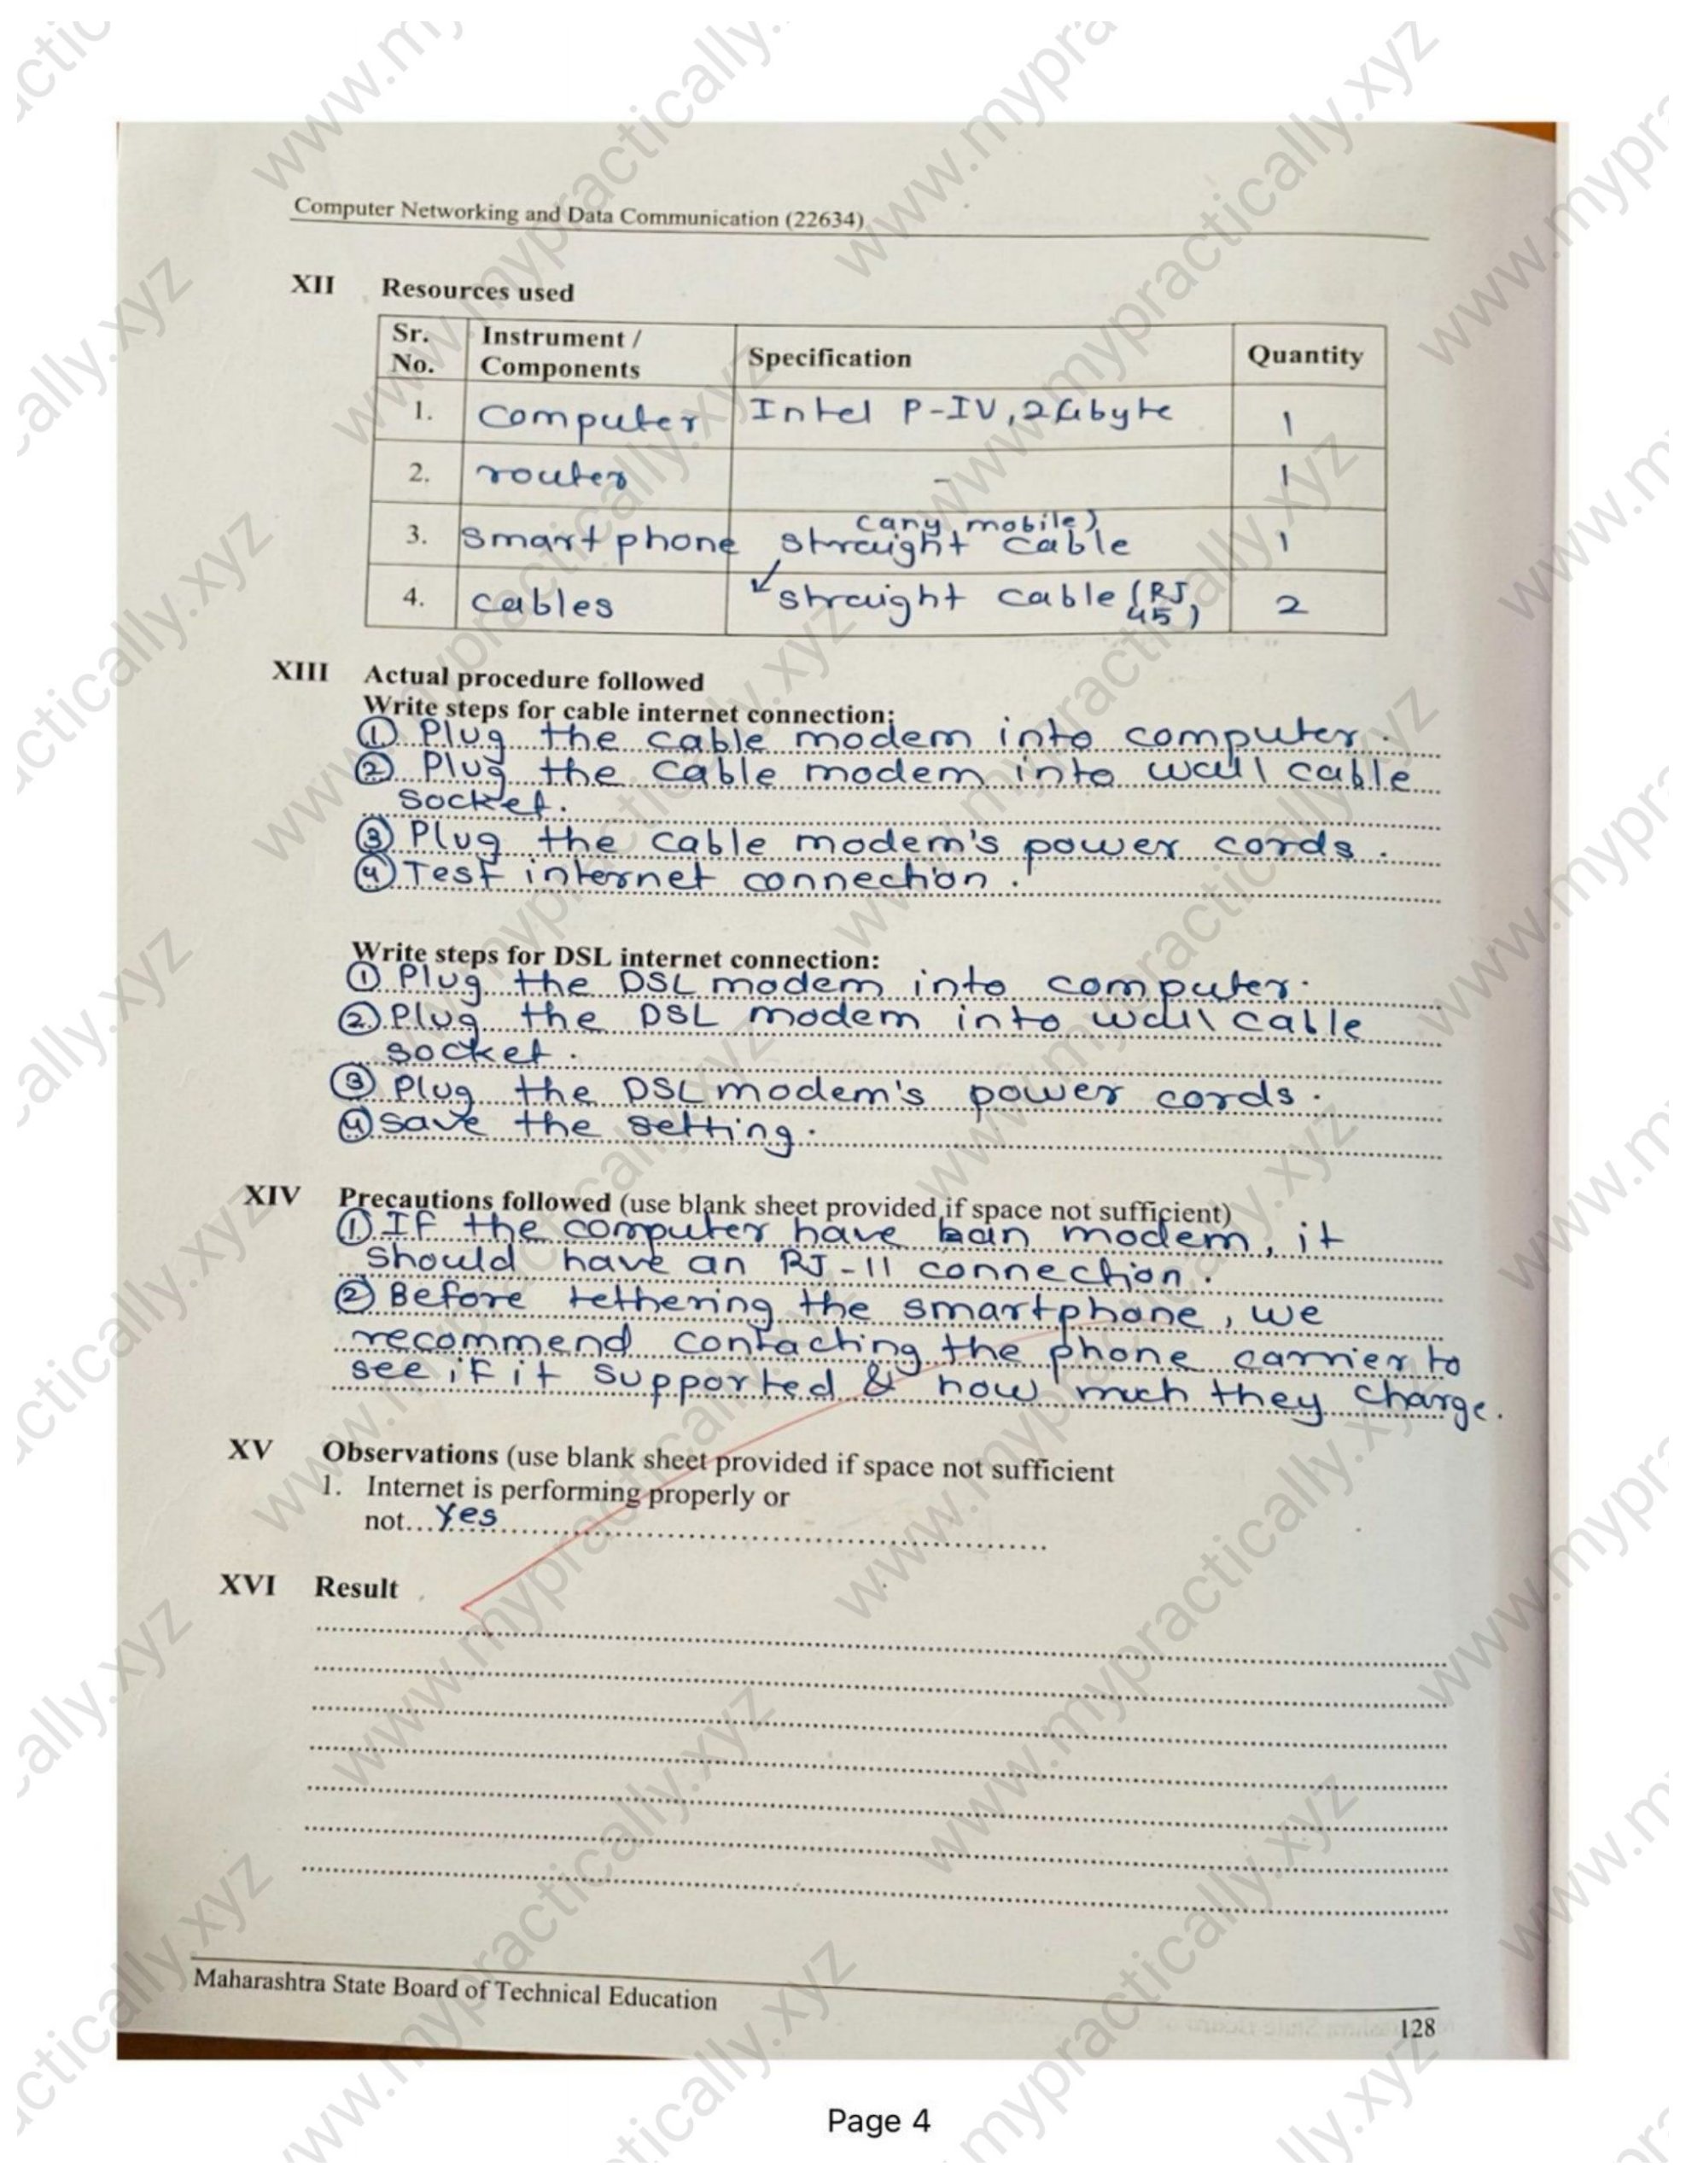 Computer Networking and Data Communication (22634)
XII Resources used
Sr. No. Instrument / Components Specification Quantity
1. computer Intel P-IV, 2Gbyte 1
2. router - 1
(any mobile)
3. smart phone straight cable 1
4. cables straight cable (RJ 45) 2
XIII Actual procedure followed
Write steps for cable internet connection:
① Plug the cable modem into computer.
② Plug the cable modem into wall cable
socket.
③ Plug the cable modem's power cords.
④ Test internet connection.
Write steps for DSL internet connection:
① Plug the DSL modem into computer.
② Plug the DSL modem into wall cable
socket.
③ Plug the DSL modem's power cords.
④ save the setting.
XIV Precautions followed (use blank sheet provided if space not sufficient)
① If the computer have an modem, it
should have an RJ-11 connection.
② Before tethering the smartphone, we
recommend contaching the phone carrier to
see if it supported & how much they charge.
XV Observations (use blank sheet provided if space not sufficient
1. Internet is performing properly or
not...Yes
XVI Result
Maharashtra State Board of Technical Education
128
Page 4
www.mypractically.xyz